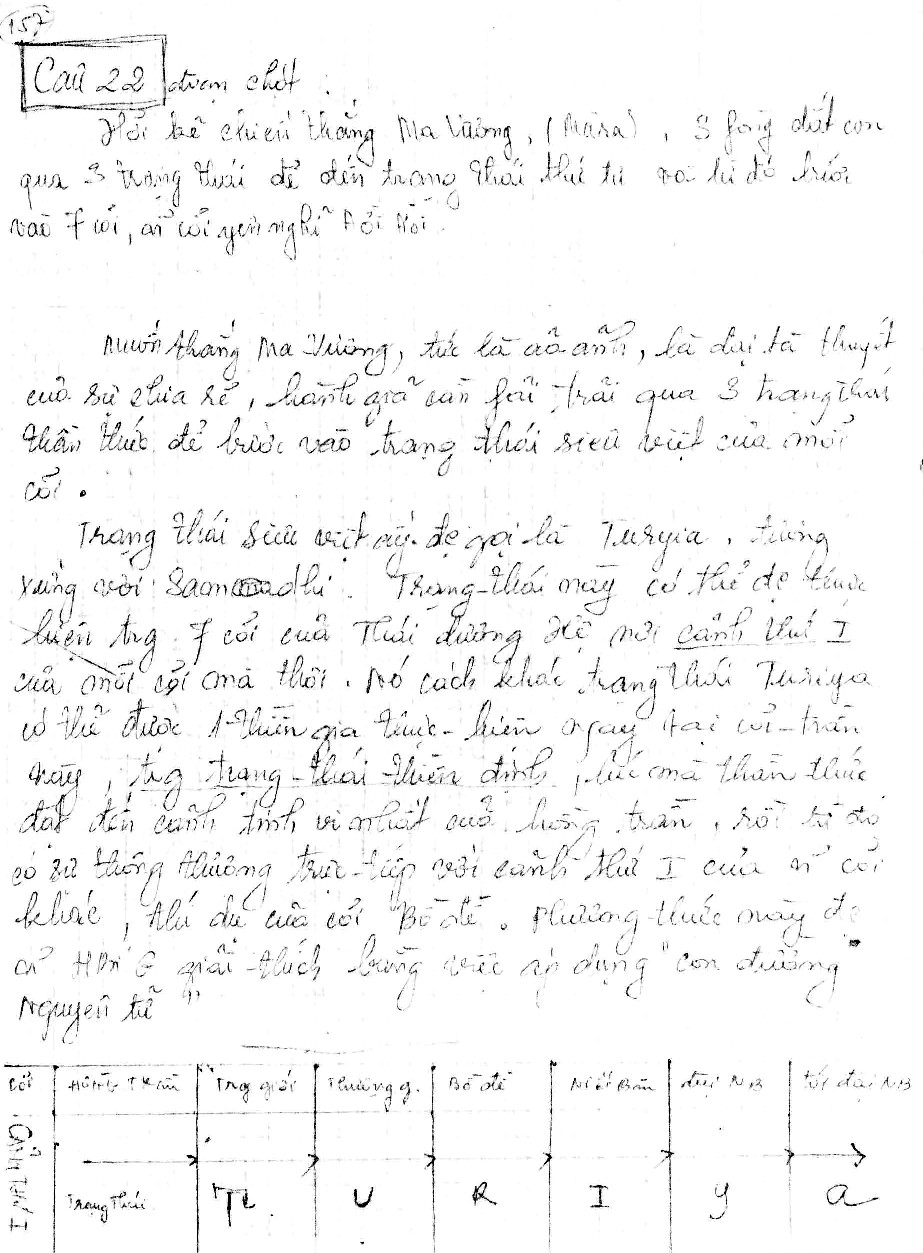 157
Câu 22 đoạn chót :
Hỡi kẻ chiến thắng Ma Vương, (Mara), 3 fòng dắt con
qua 3 trạng thái để đến trạng thái thứ tư và từ đó bước
vào 7 cõi, cõi yên nghỉ Đời Đời.
Muốn thắng Ma Vương, tức là ảo ảnh, là đại tà thuyết
của sự chia rẽ, hành giả cần fải trải qua 3 trạng thái
thần thức để bước vào trạng thái siêu việt của mỗi
cõi.
Trạng thái siêu việt ấy đc gọi là Turyia, tương
xứng với Samadhi. Trạng-thái này có thể đc thực
hiện trg 7 cõi của Thái dương Hệ nơi cảnh thứ I
của mỗi cõi mà thôi. Nó cách khác trạng thái Turiya
có thể được 1 thiền gia thực-hiện ngay tại cõi-trần
này, trg trạng-thái-thiền định, lúc mà thần thức
đạt đến cảnh tinh vi nhất của hồng trần, rồi từ đó
có sự thông thương trực-tiếp với cảnh thứ I của cõi
khác, thí dụ của cõi Bồ đề. Phương-thức này đc
giải-thích bằng việc sử dụng "con đường
Nguyên tử"
Cõi Hồng Trần Trg giới Thượng g. Bồ đề Niết Bàn đại NB tối đại NB
Cảnh thứ I
Trạng thái T U R I Y A